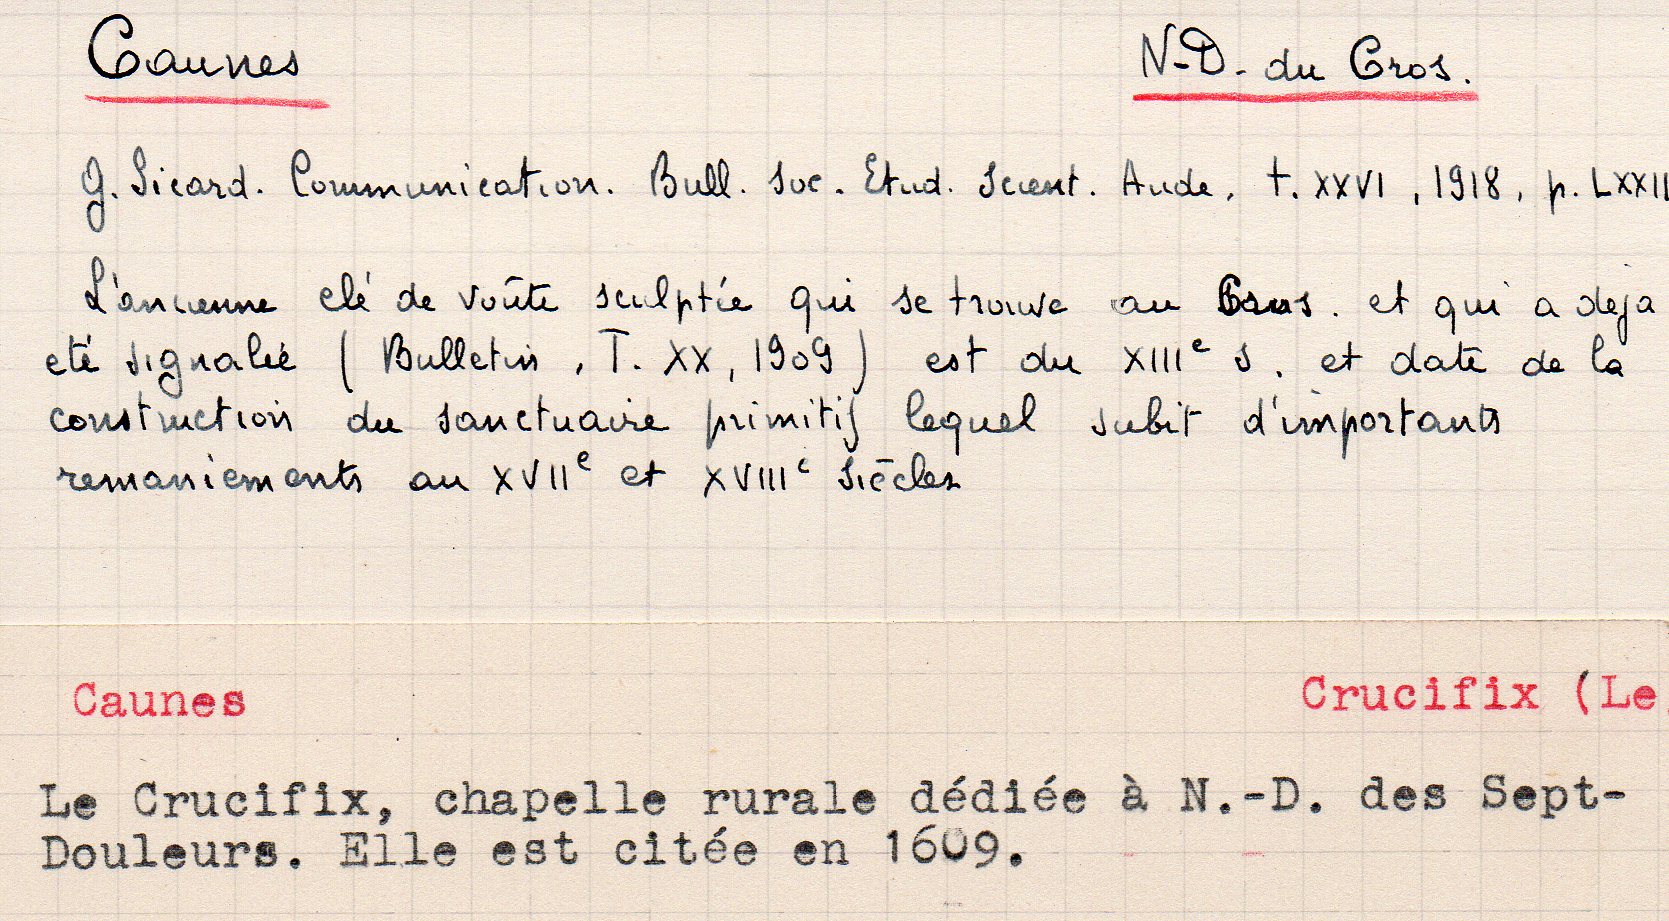 Caunes N-D. du Cros.
G. Sicard. Communication. Bull. Soc. Etud. Scient. Aude, t. XXVI, 1918, p. LXXII
L'ancienne clé de voûte sculptée qui se trouve au Cros. et qui a deja
eté signalée (Bulletin, T. XX, 1909) est du XIIIe s. et date de la
construction du sanctuaire primitif lequel subit d'importants
remaniements au XVIIe et XVIIIe siècles
Caunes Crucifix (Le
Le Crucifix, chapelle rurale dédiée à N.-D. des Sept-
Douleurs. Elle est citée en 1609.